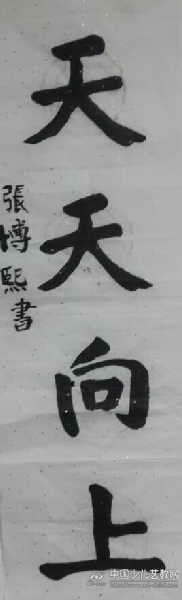 天天向上
張博熙書
中国少儿艺教网